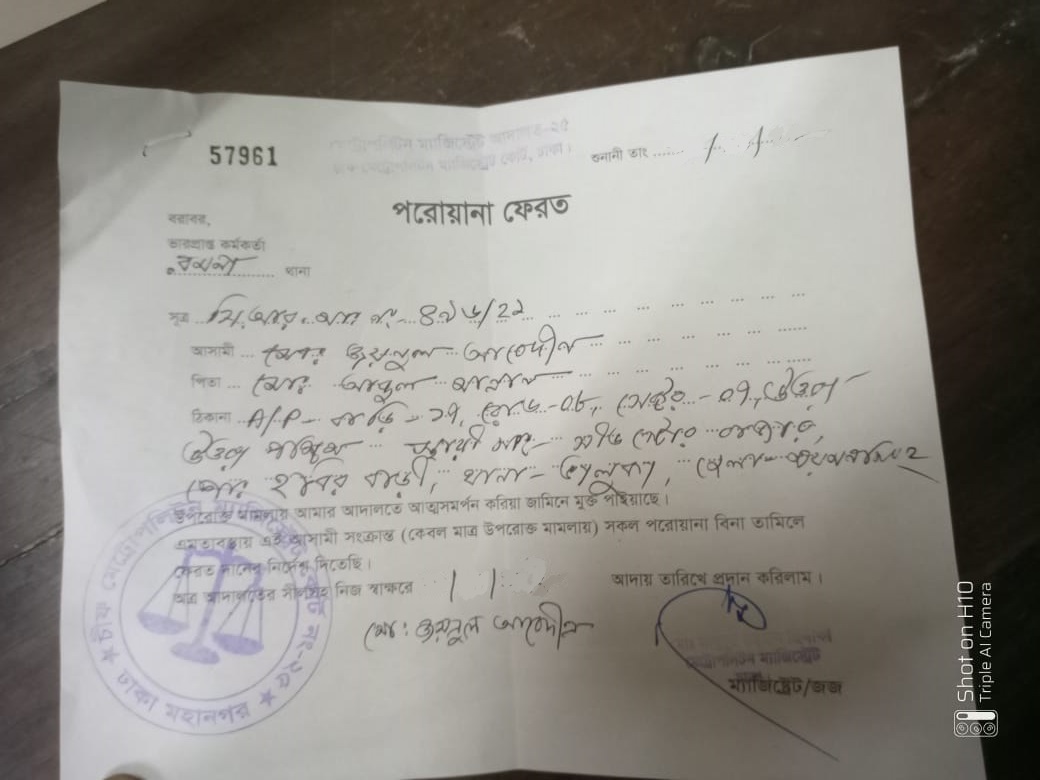 57961
মেট্রোপলিটন ম্যাজিস্ট্রেট আদালত-২৫
মেট্রোপলিটন ম্যাজিস্ট্রেট কোর্ট, ঢাকা।
শুনানী তাং ......
পরোয়ানা ফেরত
বরাবর,
ভারপ্রাপ্ত কর্মকর্তা
থানা
সূত্র সি.আর. নং- ৪৯৬/২২
আসামী ... মোঃ জয়নুল আবেদীন
পিতা ... মোঃ আব্দুল মান্নান
ঠিকানা A/P- বাড়ি-১৭, রোড-০৮, সেক্টর-০৭, উত্তরা
উত্তরা পশ্চিম স্থায়ী সাং- সীড ষ্টোর বাজার,
হবির বাড়ী, থানা- ভালুকা, জেলা- ময়মনসিংহ
উপরোক্ত মামলায় আমার আদালতে আত্মসমর্পন করিয়া জামিনে মুক্ত পাইয়াছে।
এমতাবস্থায় এই আসামী সংক্রান্ত (কেবল মাত্র উপরোক্ত মামলায়) সকল পরোয়ানা বিনা তামিলে
ফেরত দানের নির্দেশ দিতেছি।
অত্র আদালতের সীলসহ নিজ স্বাক্ষরে আদায় তারিখে প্রদান করিলাম।
মোঃ জয়নুল আবেদীন
ম্যাজিষ্ট্রেট/জজ
ঢাকা মহানগর
Shot on H10
Triple AI Camera